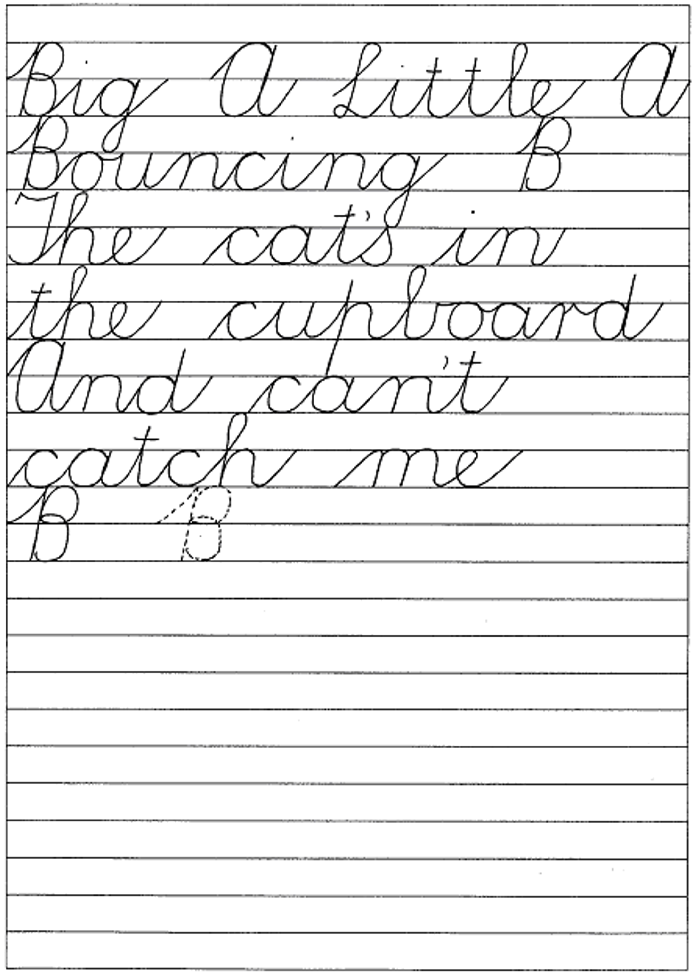 Big A Little A
Bouncing B
The cat's in
the cupboard
And can't
catch me
B B